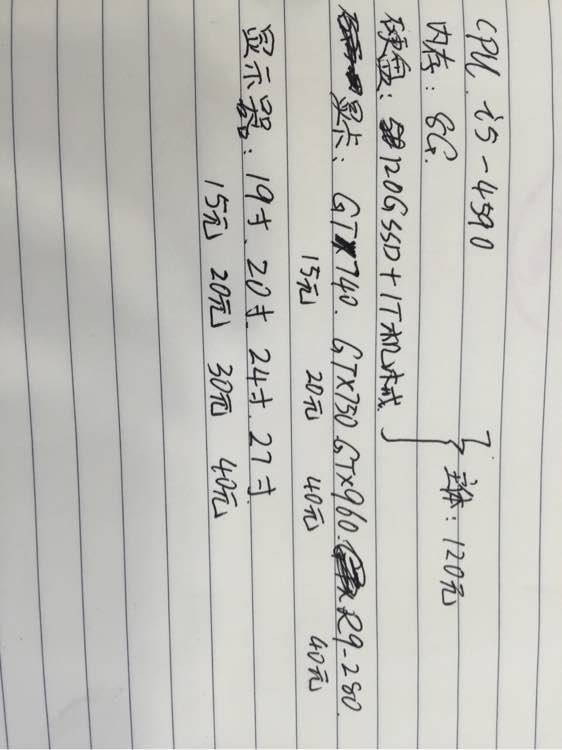 CPU i5-4590
内存：8G
硬盘：120G SSD+1T机械
主体：120元
显卡：GT740. GTX750 GTX960. R9-280.
15元 20元 40元 40元
显示器：19寸、20寸. 24寸. 27寸
15元 20元 30元 40元